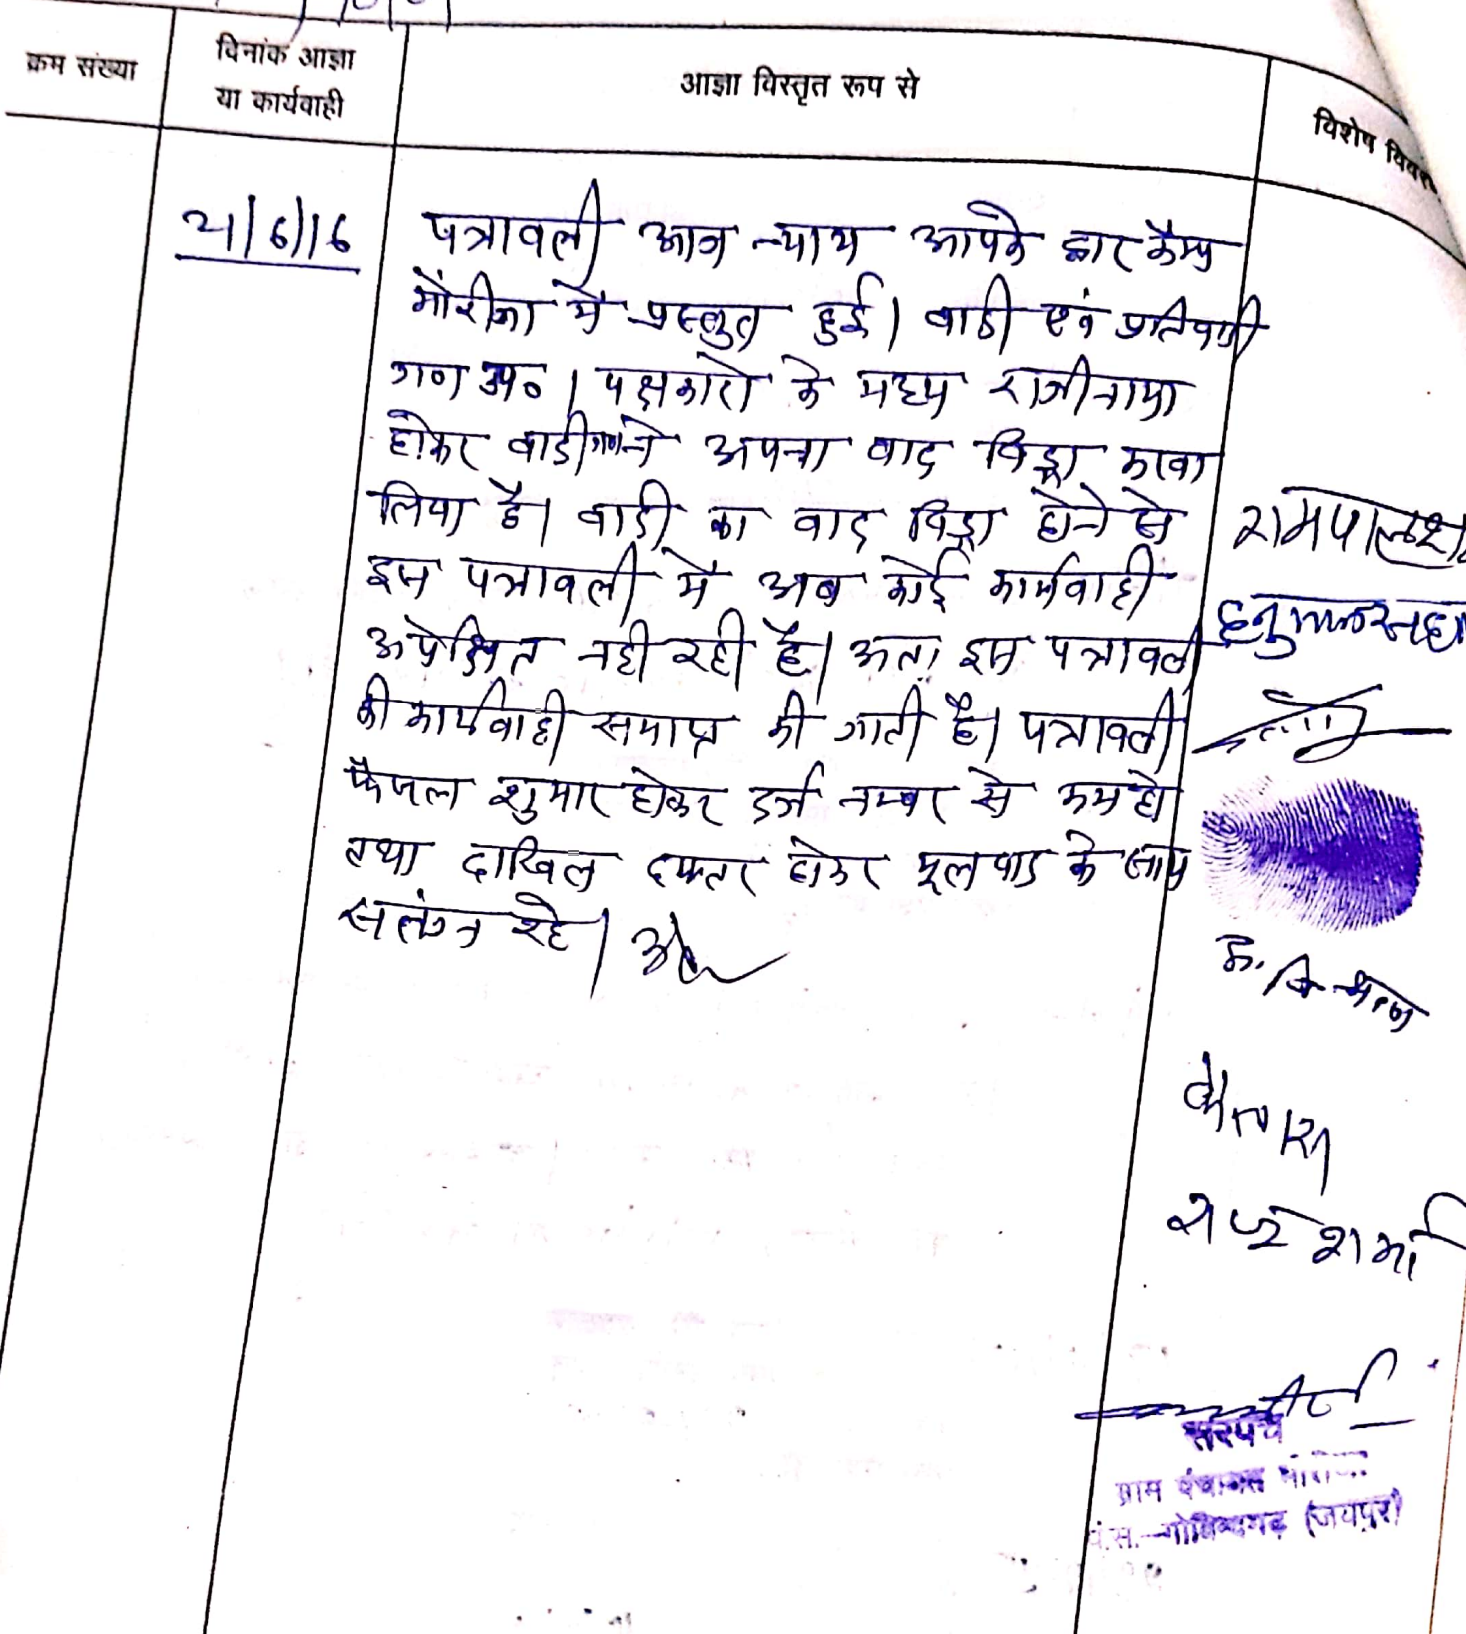 क्रम संख्या
दिनांक आज्ञा
या कार्यवाही
आज्ञा विस्तृत रूप से
विशेष विवर
21/6/16
पत्रावली आज न्याय आपके द्वार कैम्प
मोरीजा में प्रस्तुत हुई। वादी एवं प्रतिवादी
गण उप०। पक्षकारो के मध्य राजीनामा
होकर वादीगण ने अपना वाद विड्रा करवा
लिया है। वादी का वाद विड्रा होने से
इस पत्रावली में अब कोई कार्यवाही
अपेक्षित नही रही है। अतः इस पत्रावली
की कार्यवाही समाप्त की जाती है। पत्रावली
फैसल शुमार होकर दर्ज नम्बर से कम हो
तथा दाखिल दफ्तर होकर मूल वाद के साथ
सलंग्न रहे।
रामपाल
हनुमान सहाय
कैलाश
शर्मा
सरपंच
ग्राम पंचायत मोरीजा
पं.स.-गोविन्दगढ़ (जयपुर)